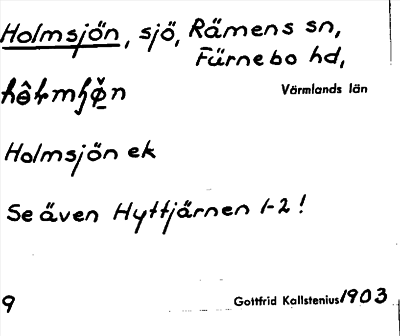 Holmsjön, sjö, Rämens sn,
Färnebo hd,
Värmlands län
Holmsjön ek
Se även Hyttjärnen 1-2!
9
Gottfrid Kallstenius 1903